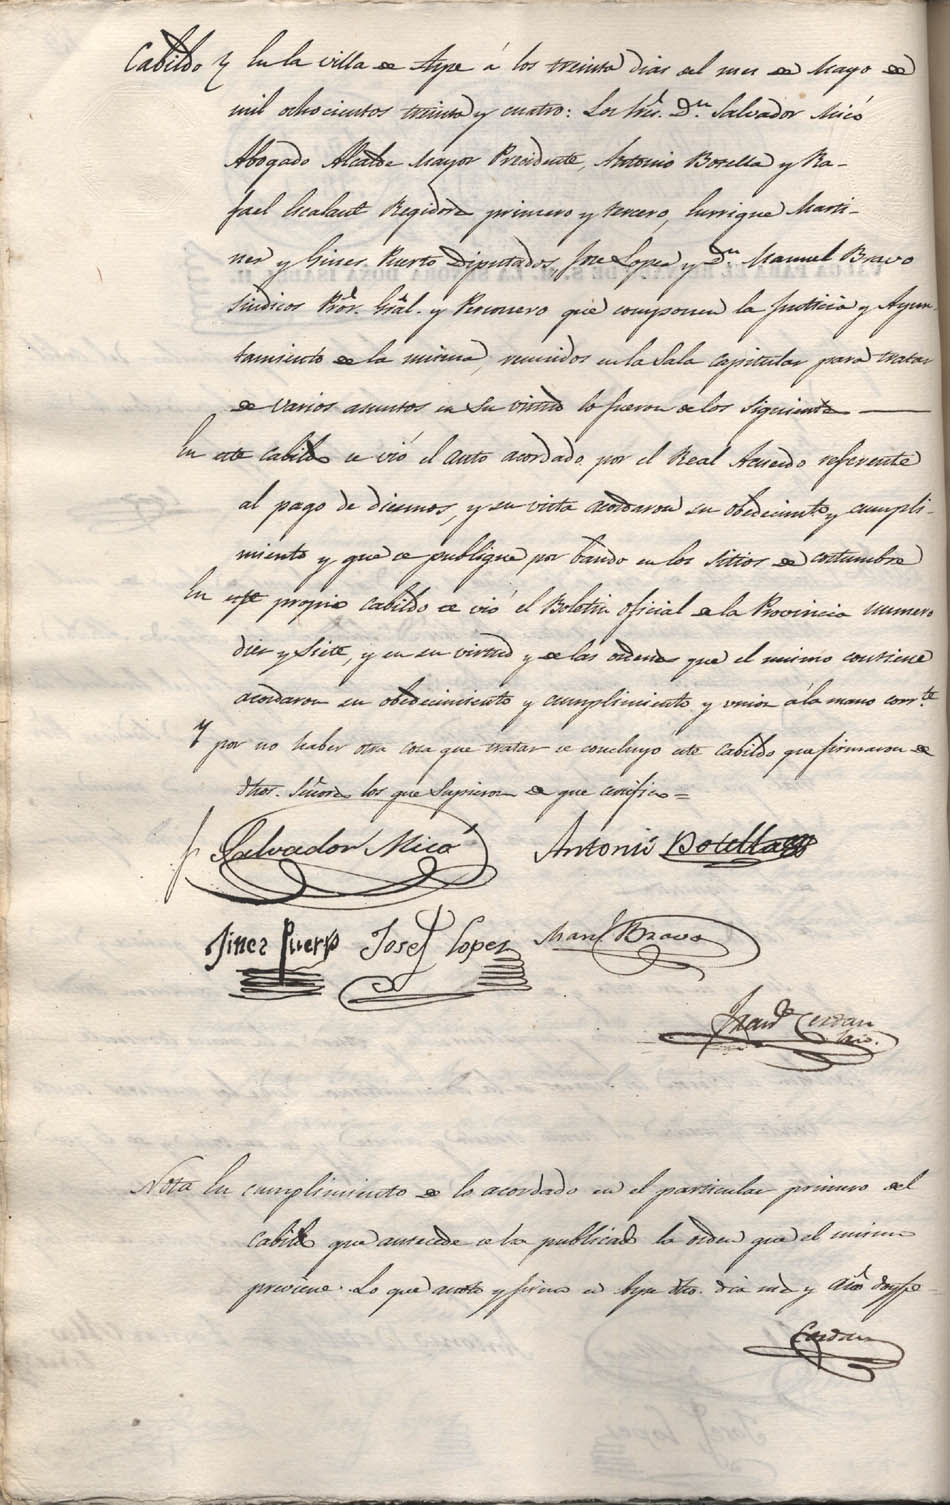 Cabildo } En la villa de Aspe á los treinta dias del mes de Mayo de
mil ochocientos treinta y cuatro: Los Sres. Dn. Salvador Micó
Abogado Alcalde Mayor Presidente, Antonio Botella y Ra-
fael Escalant Regidores primero y tercero, Enrrique Marti-
nez y Gines Puerto Diputados, Jose Lopez y Dn. Manuel Bravo
Sindicos Pror. Gral. y Personero que componen la Justicia y Ayun-
tamiento de la misma, reunidos en la Sala Capitular para tratar
de varios asuntos en su virtud lo fueron de los siguientes
En este Cabildo se vió el auto acordado por el Real Acuerdo referente
al pago de diezmos, y en su vista acordaron su obedecimto. y cumpli-
miento y que se publique por bando en los sitios de costumbre
En este propio Cabildo se vió el Boletin oficial de la Provincia numero
diez y siete, y en su virtud y de las ordenes que el mismo contiene
acordaron su obedecimiento y cumplimiento y union á la mano corrte.
Y por no haber otra cosa que tratar se concluyo este Cabildo que firmaron de
dhos. Señores los que supieron de que certifico =
Salvador Micó Antonio Botella
Jines Puerto Josef Lopez Manl. Bravo
Franco. Cerdan
Srio.
Nota En cumplimiento de lo acordado en el particular primero del
Cabildo que antecede se ha publicado la orden que el mismo
previene. Lo que anoto y firmo en Aspe dho. dia mes y año doy fe =
Cerdan